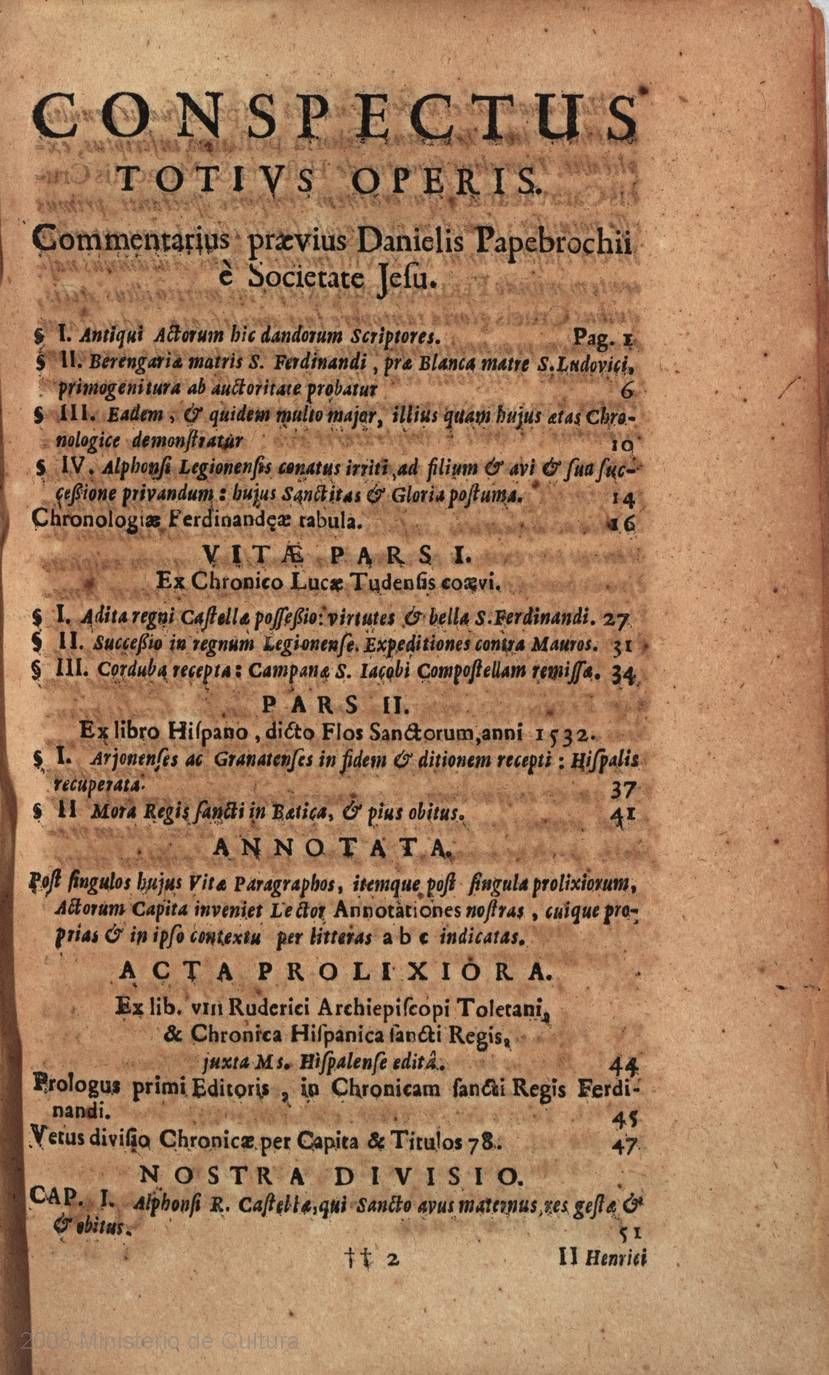 CONSPECTUS
TOTIVS OPERIS.
Commentarius prævius Danielis Papebrochii
è Societate Jeſu.
§ I. Antiqui Actorum hic dandorum Scriptores. Pag. 1
§ II. Berengariæ matris S. Ferdinandi, præ Blanca matre S. Ludovici,
primogenitura ab auctoritate probatur 6
§ III. Eadem, & quidem multo major, illius quam hujus ætas Chro-
nologice demonſtratur 10
§ IV. Alphonſi Legionenſis conatus irriti, ad filium & avi & ſua ſuc-
ceßione privandum: hujus Sanctitas & Gloria poſtuma. 14
Chronologiæ Ferdinandęæ tabula. 16
VITÆ PARS I.
Ex Chronico Lucæ Tudenſis coævi.
§ I. Adita regni Caſtellæ poſſeßio: virtutes & bella S. Ferdinandi. 27
§ II. Succeßio in regnum Legionenſe. Expeditiones contra Mauros. 31
§ III. Corduba recepta: Campanæ S. Iacobi Compoſtellam remiſſæ. 34
PARS II.
Ex libro Hiſpano, dicto Flos Sanctorum, anni 1532.
§ I. Arjonenſes ac Granatenſes in fidem & ditionem recepti: Hiſpalis
recuperata. 37
§ II Mora Regis ſancti in Bætica, & pius obitus. 41
ANNOTATA.
Poſt ſingulos hujus Vitæ Paragraphos, itemque poſt ſingula prolixiorum,
Actorum Capita inveniet Lector Annotationes noſtras, cuique pro-
prias & in ipſo contextu per litteras a b c indicatas.
ACTA PROLIXIORA.
Ex lib. VIII Ruderici Archiepiſcopi Toletani,
& Chronica Hiſpanica ſancti Regis,
juxta Ms. Hiſpalenſe editâ. 44
Prologus primi Editoris, in Chronicam ſancti Regis Ferdi-
nandi. 45
Vetus diviſio Chronicæ per Capita & Titulos 78. 47
NOSTRA DIVISIO.
CAP. I. Alphonſi R. Caſtellæ, qui Sancto avus maternus, res geſtæ &
& obitus. 51
†† 2 II Henrici
2008 Ministerio de Cultura